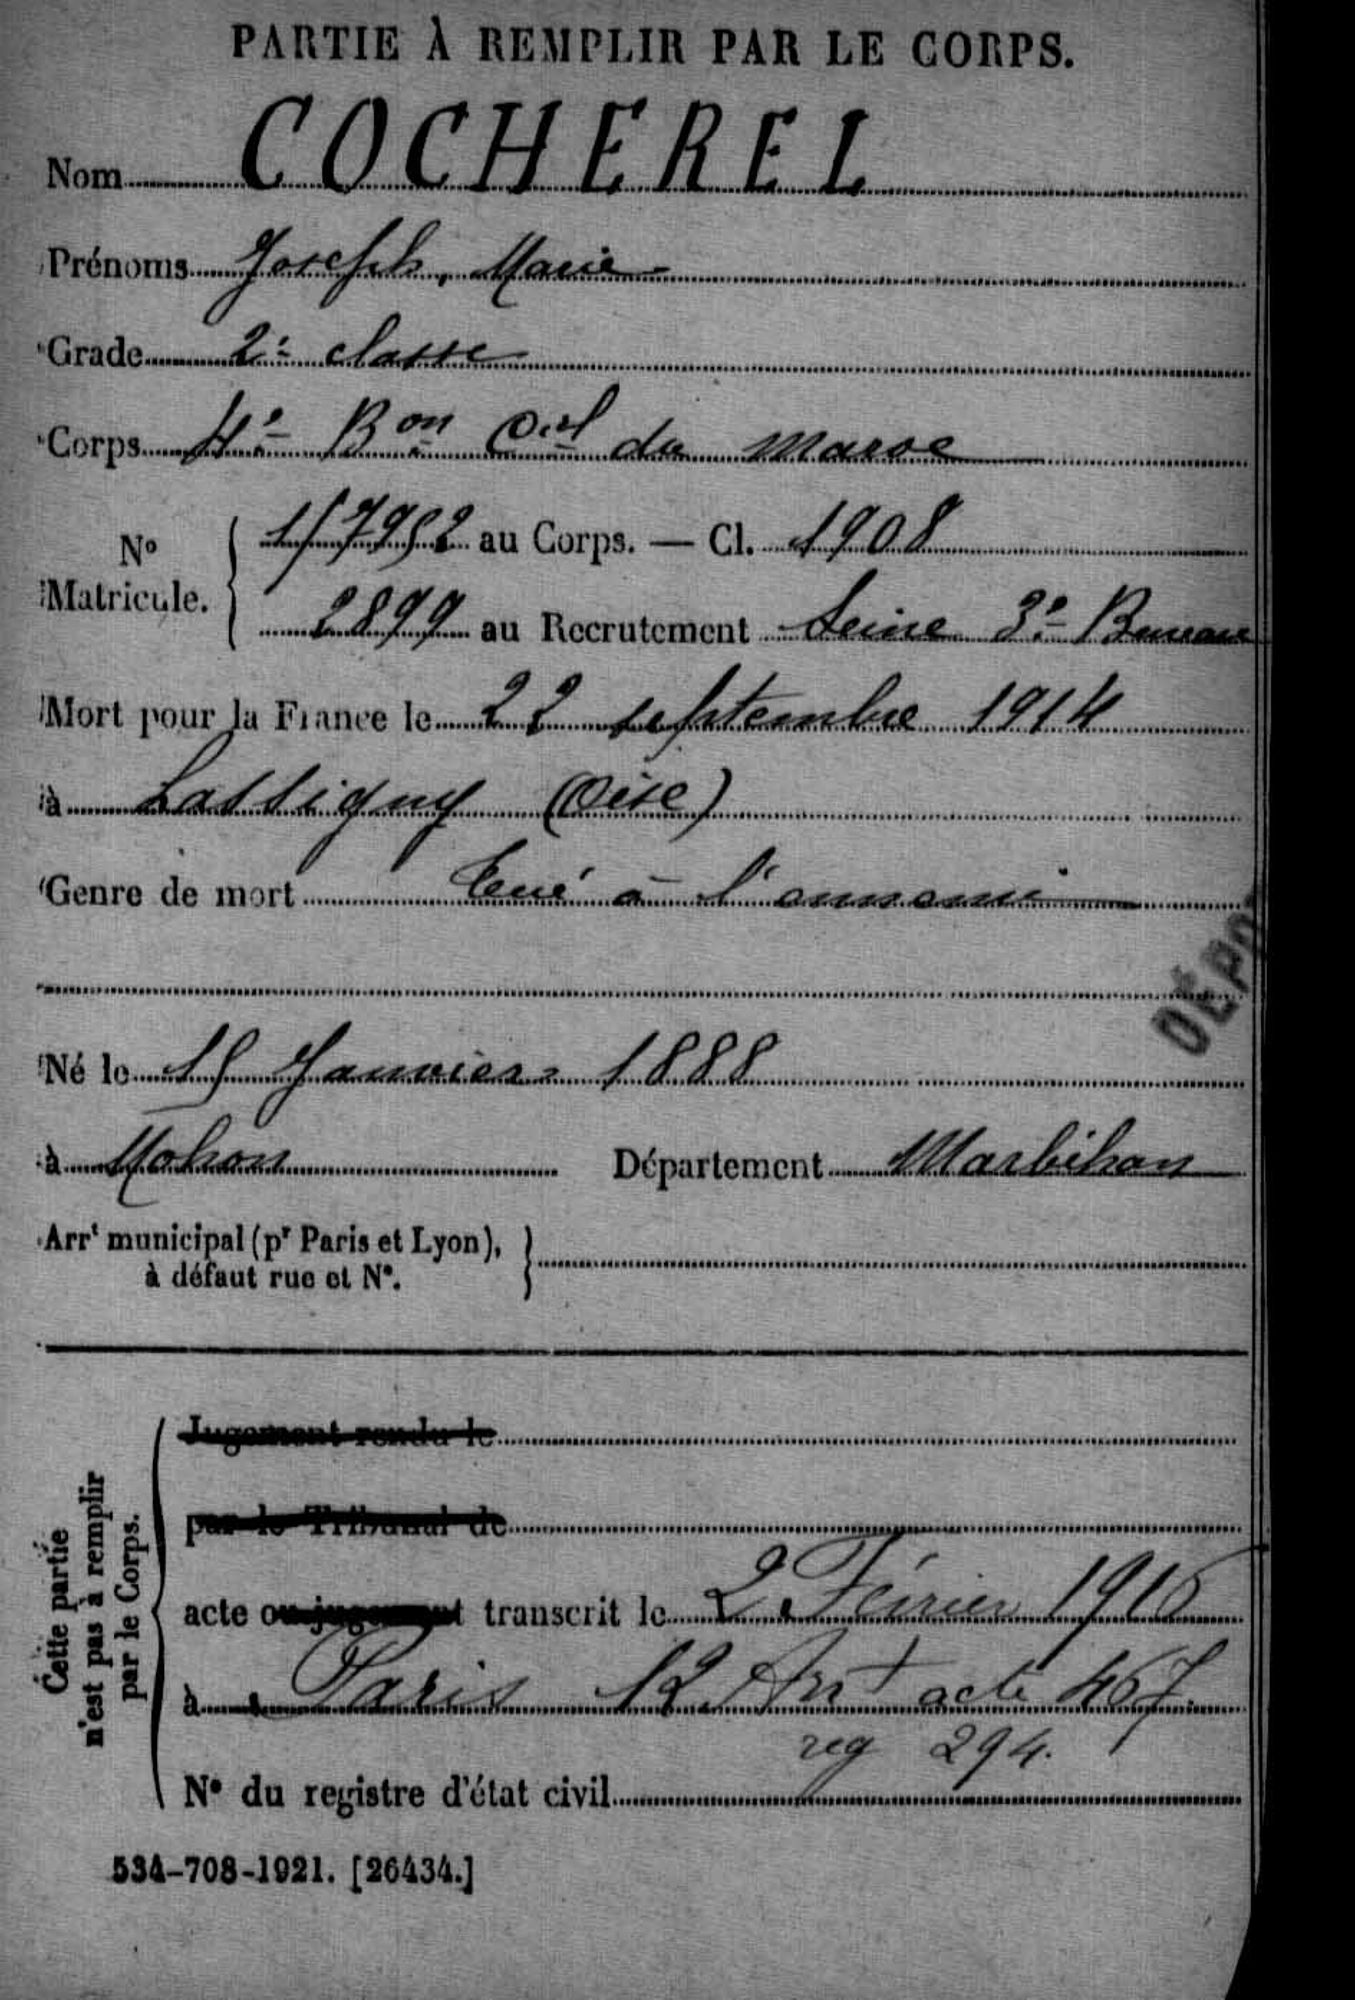 PARTIE À REMPLIR PAR LE CORPS.
Nom COCHEREL
Prénoms Joseph, Marie
Grade 2e classe
Corps 4e Bon Cial du Maroc
No Matricule. 17952 au Corps. — Cl. 1908
2899 au Recrutement Seine 3e Bureau
Mort pour la France le 22 septembre 1914
à Lassigny (Oise)
Genre de mort Tué à l'ennemi
DÉPO
Né le 15 Janvier 1888
à Mohon Département Morbihan
Arrt municipal (pr Paris et Lyon),
à défaut rue et No.
Cette partie
n'est pas à remplir
par le Corps.
Jugement rendu le
par le Tribunal de
acte ou jugement transcrit le 2 Février 1916
à Paris 12 Art acte 467.
reg 294.
No du registre d'état civil
534-708-1921. [26434.]